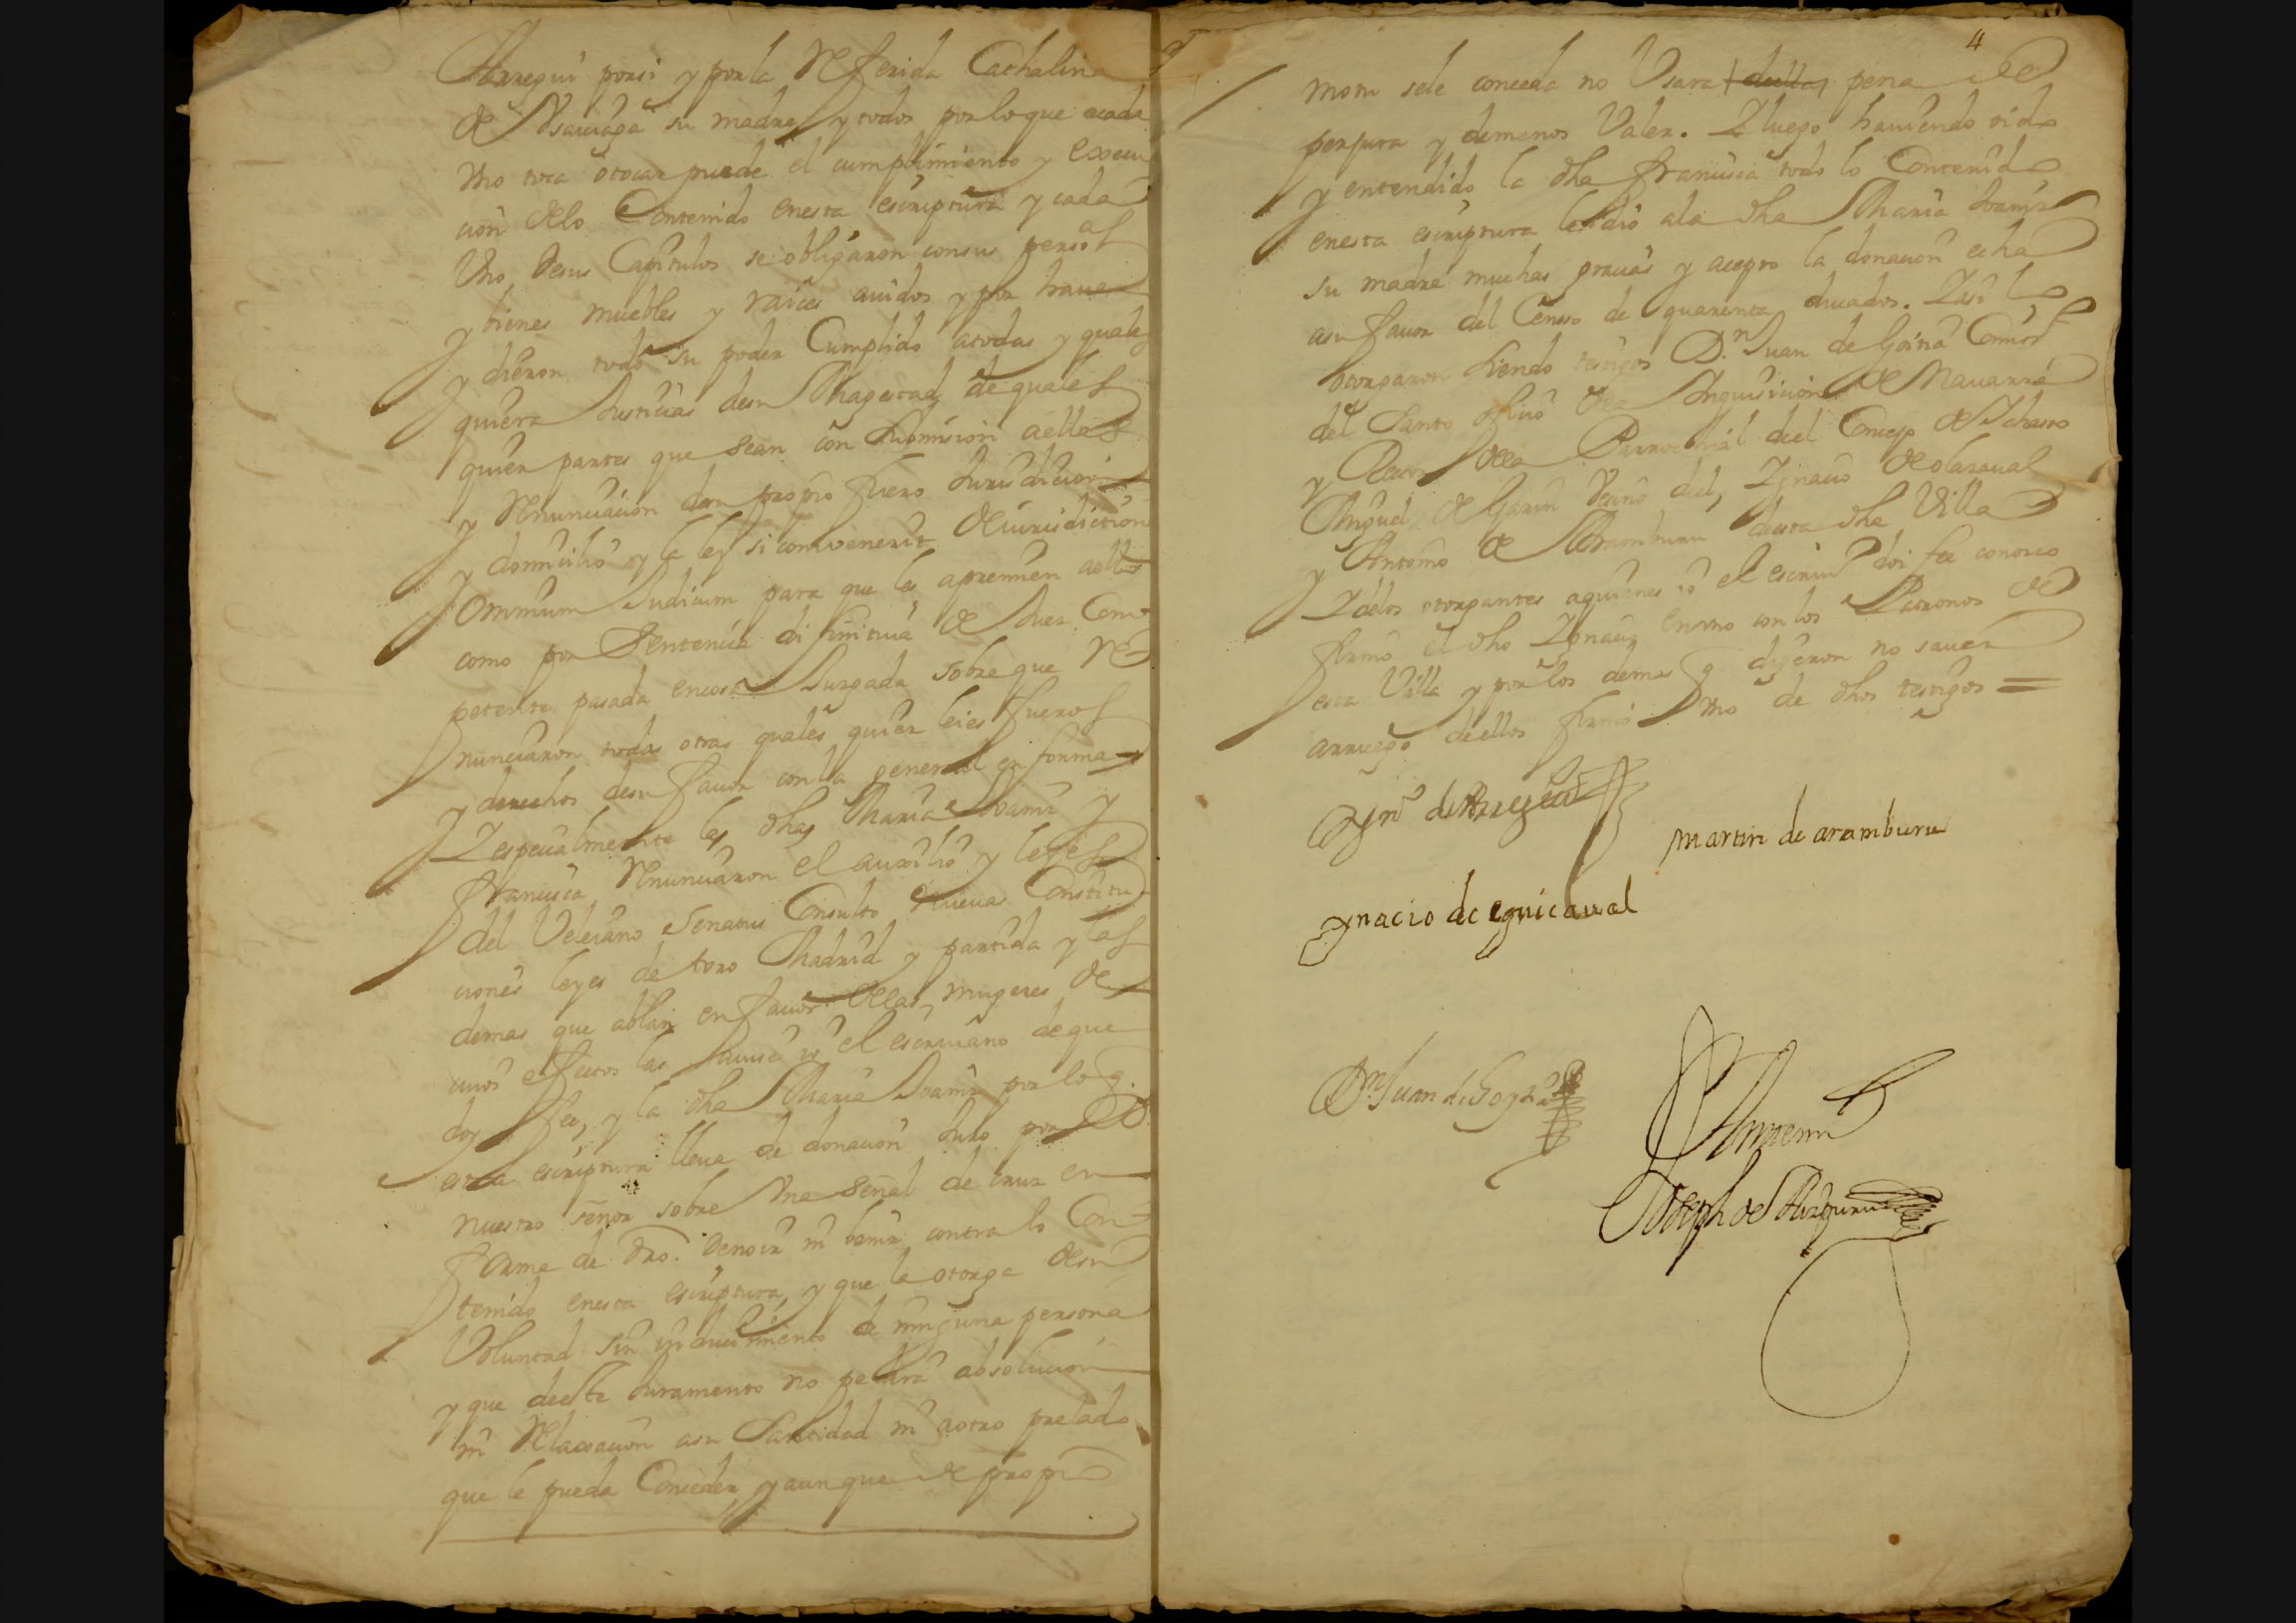 Arregui por si y por la Referida Cathalina
de Usauiaga su madre, y todos por lo que acada
Vno toca o tocar puede el cumplimiento y execu
cion delo Contenido enesta escriptura y cada
Vno desus Capitulos se obligaron consus perso.as
y bienes muebles y raices auidos y por hauer
y dieron todo su poder Cumplido atodas y quales
quiera Justicias desu Magestad de quales
quier partes que sean con sumision aellas
y Renunciacion desu propio fuero Jurisdicion
y domicilio y la ley si convenerit de iurisdictione
omnium Judicum para que les apremien aello
como por Sentencia difinitiua de Juez Com
petente pasada encosa Juzgada sobre que Re
nunciaron todas otras quales quier leies fueros
y derechos desu fauor con la general en forma
Y especialmente las dhas Maria Joaniz y
francisca Renunciaron el auxilio y leyes
del Veleiano Senatus Consulto nueuas Constitu
ciones leyes de toro Madrid y partida y las
demas que ablan en fauor delas mugeres de
cuios efectos las auise io el escriuano de que
doy fee, y la dha Maria Joaniz por lo q.
esta escriptura lleua de donacion Juro por Dios
nuestro señor sobre Vna señal de cruz en
forma de dro. de no ir ni benir contra lo Con
tenido enesta escriptura, y que la otorga desu
Voluntad sin inducimiento de ninguna persona
y que deeste Juramento no pedira absolucion
ni Relaxacion asu Santidad ni aotro prelado
que le pueda Conceder, y aunque de propio
4
motu sele conceda no Vsara della, pena de
perjura y demenos Valer. Y luego hauiendo oido
y entendido la dha francisca todo lo Contenido
enesta escriptura le dio ala dha Maria Joaniz
su madre muchas gracias y acepto la donacion echa
asu fauor del Censo de quarenta ducados. Y asi lo
otorgaron siendo testigos D.n Juan de Goiria Comiss.o
del Santo oficio dela Inquisicion de Nauarra
y Rector dela Parrochial del Concejo de Ichaso
Miguel de Garin Vecino del, Ygnacio de olaraual
y Antonio de Aramburu desta dha Villa
Y delos otorgantes aquienes io el escriu.o doi fee conozco
firmo el dho Ygnacio en vno con los Patronos de
esta Villa y por los demas q dijeron no sauer
arruego deellos firmo Vno de dhos testigos =
Martin de aramburu
ygnacio de eguicaual
D.n Juan de Goyria
Antemi
Joseph de